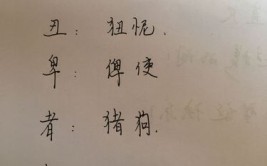 丑：扭怩.
卑：俾使
者：猪狗.